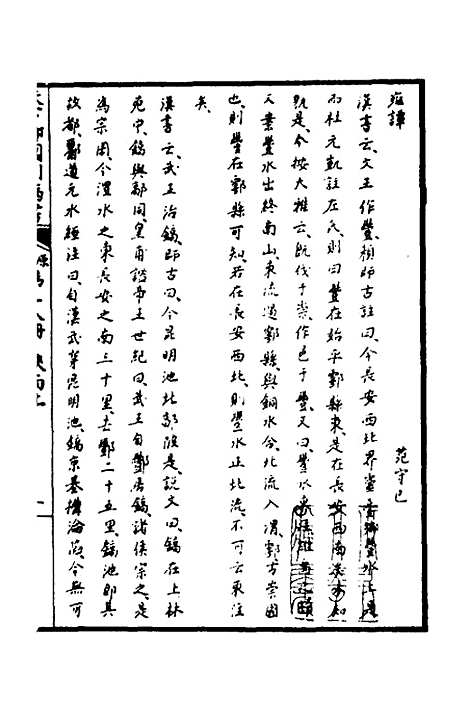 雍譚
范守己
漢書云文王作豐楨師古註曰今長安西北界靈臺鄉豐水上是
而杜元凱註左氏則曰豐在始平鄠縣東是在長安西南矣未知
孰是今按大雅云既伐于崇作邑于豐又曰豐水東注維禹之績
又豐水出終南山東流過鄠縣與鎬水合北流入渭鄠古崇國
也則豐在鄠縣可知若在長安西北則豐水正北流不可云東注
矣
漢書云武王治鎬師古曰今昆明池北鄗陂是說文曰鎬在上林
苑中鎬與鄗同皇甫謐帝王世紀曰武王自酆居鎬諸侯宗之是
為宗周今灃水之東長安之南三十里去酆二十五里鎬池即其
故都酈道元水經注曰自漢武穿昆明池鎬京基構淪落今無可